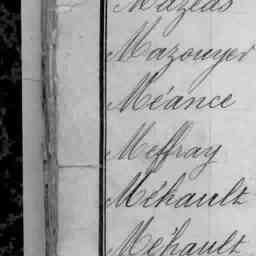 Mazéas
Mazouyer
Méance
Meffray
Méhault
Méhault